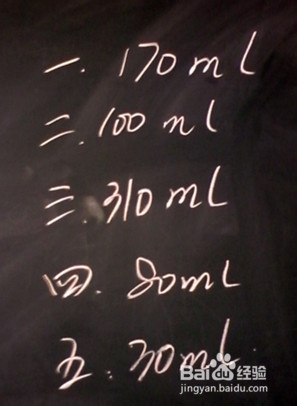 一. 170ml
二. 100ml
三. 310ml
四. 80ml
五. 30ml
Baidu经验
jingyan.baidu.com